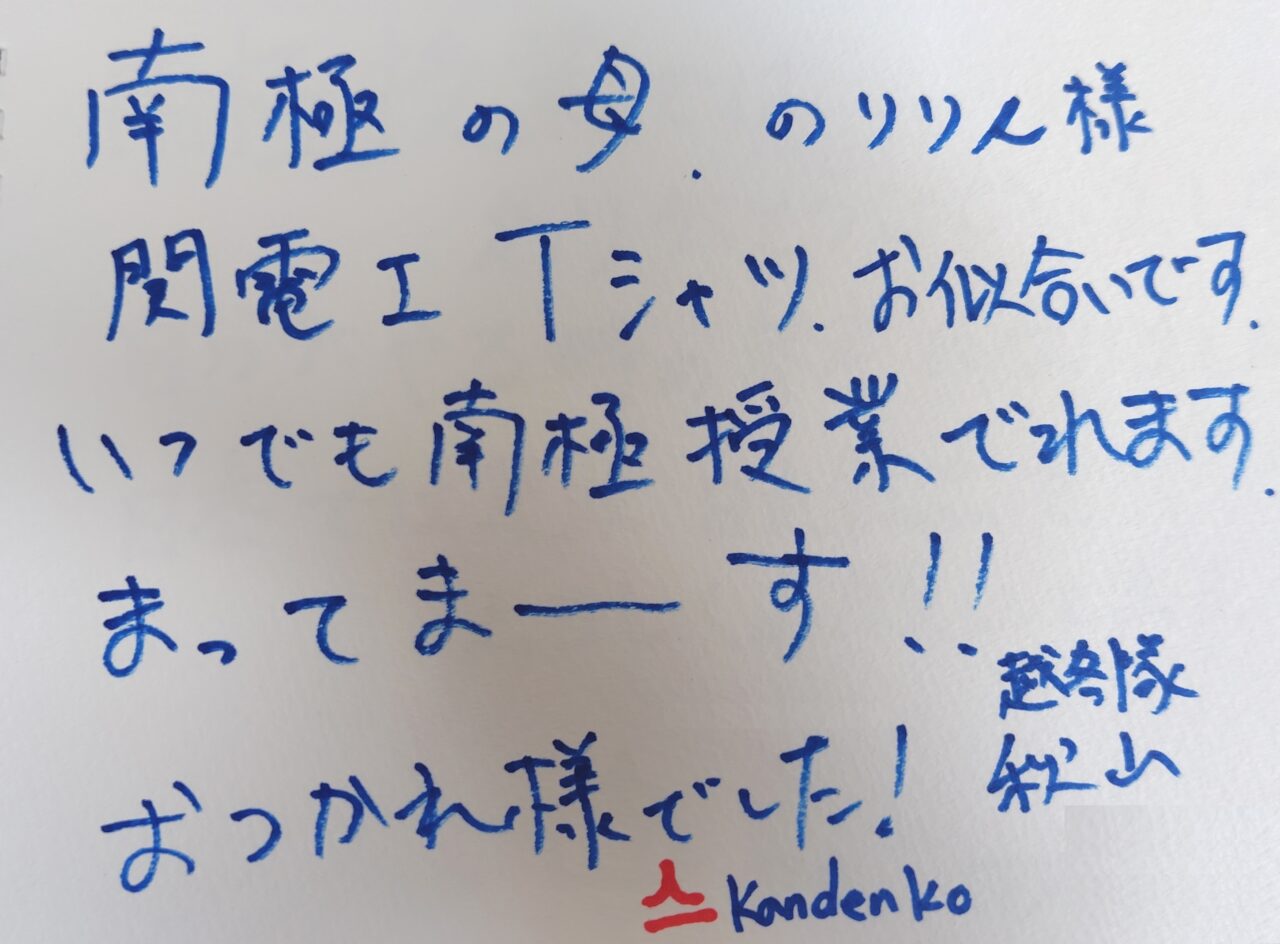 南極の母.のりりん様
関電工Tシャツ.お似合いです.
いつでも南極授業でれます.
まってまーす!!
越冬隊
秋山
おつかれ様でした!
Kandenko